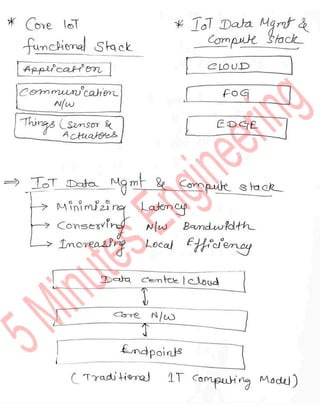 * Core IoT
functional Stack
Application
Communication
N/W
Things (Sensor &
Actuators
* IoT Data Mgmt &
Compute Stack
CLOUD
FOG
EDGE
⇒ IoT Data Mgmt & Compute stack
→ Minimizing Latency
→ Conserving N/W Bandwidth
→ Increasing Local Efficiency
Data Center / Cloud
Core N/W
Endpoints
(Traditional IT Computing Model)
5 Minutes Engineering